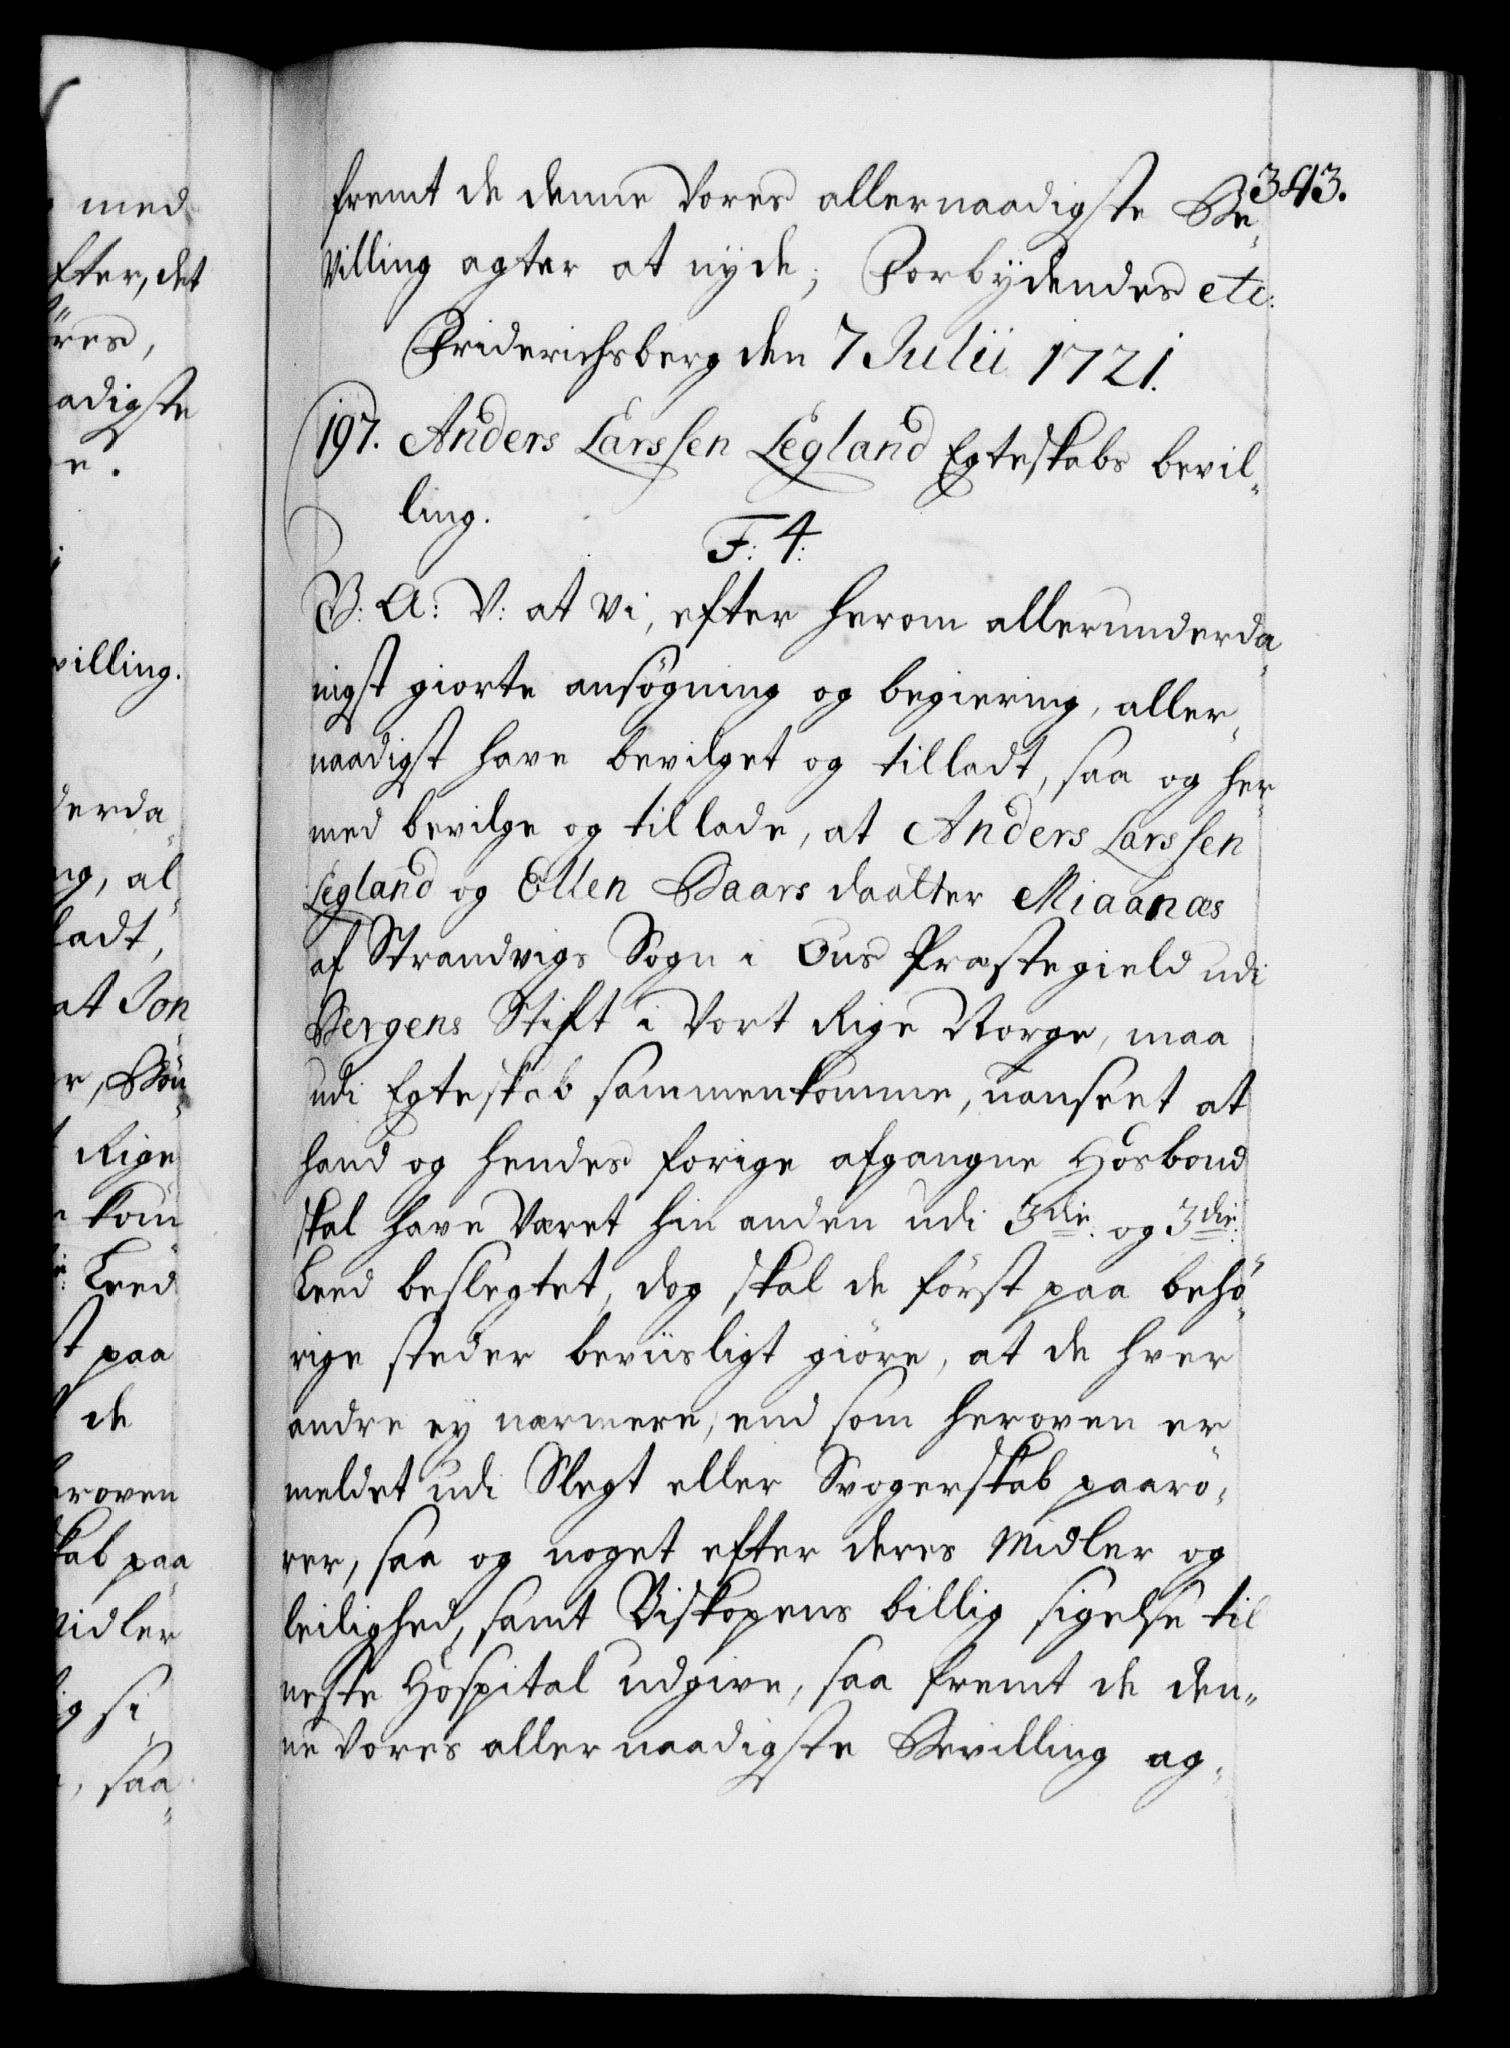 343.
fremt de denne Vores allernaadigste Be-
villing agter at nyde; Forbydendes etc:
Friderichsberg den 7 Julii 1721.
197. Anders Larssen Legland Egteskabs bevil-
ling.
F: 4:
V: A: V: at Vi, efter herom allerunderda-
nigst giorte ansøgning og begiering, aller-
naadigst have bevilget og tilladt, saa og her-
med bevilge og tillade, at Anders Larssen
Legland og Ellen Baars daatter Miaanæs
af Strandvigs Sogn i Ous Præstegield udi
Bergens Stift i Vort Rige Norge, maa
udi Egteskab sammenkomme, uanseet at
hand og hendes forige afgangne Hosbond
skal have Været hin anden udi 3die og 3die
Leed beslegtet, dog skal de först paa behö-
rige steder beviisligt giöre, at de hver
andre ey nærmere, end som heroven er
meldet udi Slegt eller Svogerskab paarö-
rer, saa og noget efter deres Midler og
leilighed, samt Biskopens billig sigelse til
neste Hospital udgive, saa fremt de den-
ne Vores allernaadigste Bevilling ag-
med
fter, det
öres,
adigste
villing.
derda-
ng, al-
ladt,
at Jon
Rige
kom
Leed
st paa
de
eroven
skab paa-
Midler
ig si-
, saa-